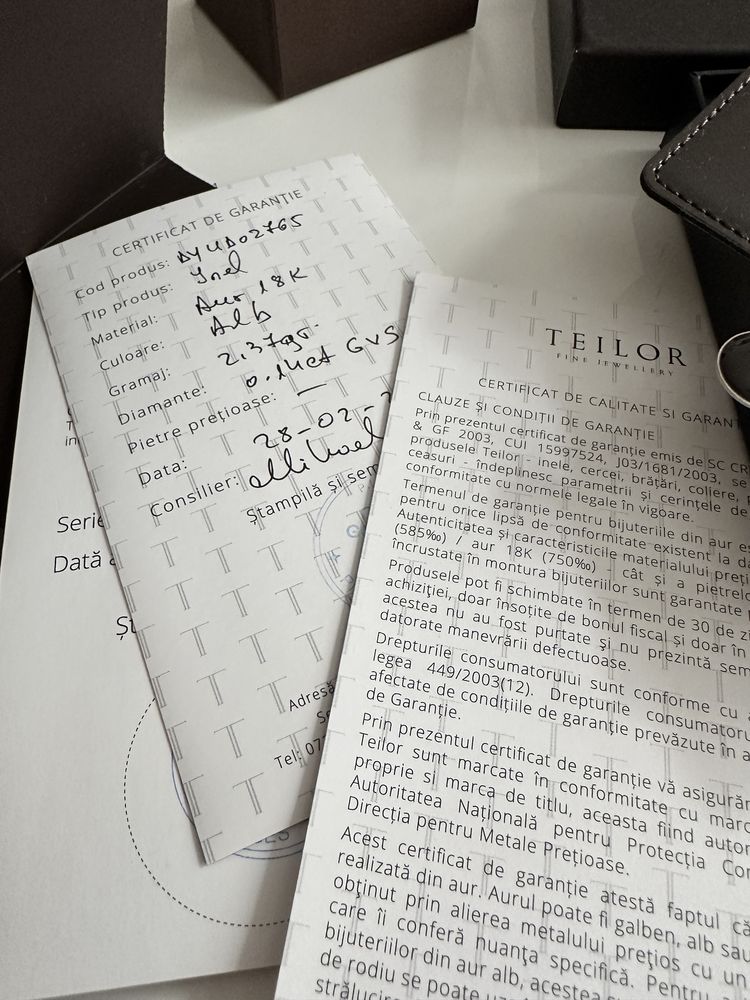 CERTIFICAT DE GARANȚIE
Cod produs: DYUD02765
Tip produs: Inel
Material: Aur 18K
Culoare: Alb
Gramaj: 2,37gr.
Diamante: 0.14ct GVS
Pietre prețioase: —
Data: 28-02-2
Consilier:
Ștampilă și sem
Adresă
Se
Tel: 07
Serie
Dată
Șt
TEILOR
FINE JEWELLERY
CERTIFICAT DE CALITATE SI GARANT
CLAUZE ȘI CONDIȚII DE GARANȚIE
Prin prezentul certificat de garanție emis de SC CR
& GF 2003, CUI 15997524, J03/1681/2003, se
produsele Teilor - inele, cercei, brățări, coliere,
ceasuri - îndeplinesc parametrii și cerințele de
conformitate cu normele legale în vigoare.
Termenul de garanție pentru bijuteriile din aur es
pentru orice lipsă de conformitate existent la da
Autenticitatea și caracteristicile materialului preți
(585‰) / aur 18K (750‰) - cât și a pietrelo
încrustate în montura bijuteriilor sunt garantate
Produsele pot fi schimbate în termen de 30 de zi
achiziției, doar însoțite de bonul fiscal și doar în
acestea nu au fost purtate și nu prezintă sem
datorate manevrării defectuoase.
Drepturile consumatorului sunt conforme cu
legea 449/2003(12). Drepturile consumatoru
afectate de condițiile de garanție prevăzute în a
de Garanție.
Prin prezentul certificat de garanție vă asigurăm
Teilor sunt marcate în conformitate cu marc
proprie si marca de titlu, aceasta fiind autor
Autoritatea Națională pentru Protecția Con
Direcția pentru Metale Prețioase.
Acest certificat de garanție atestă faptul că
realizată din aur. Aurul poate fi galben, alb sau
obținut prin alierea metalului prețios cu un
care îi conferă nuanța specifică. Pentru
bijuteriilor din aur alb, aceste
de rodiu se poate
străluci